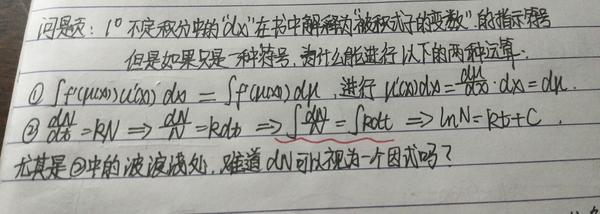 问题: 1° 不定积分中的"dx"在书中解释为"被积式子的变数"的指示符号
但是如果只是一种符号,为什么能进行以下的两种运算:
① ∫f'(u(x))u'(x)dx = ∫f'(u(x))du, 进行 u'(x)dx = du/dx · dx = du.
② dN/dt = kN ⇒ dN/N = kdt ⇒ ∫dN/N = ∫kdt ⇒ lnN = kt + C.
尤其是②中的波浪线处,难道dN可以视为一个因式吗?